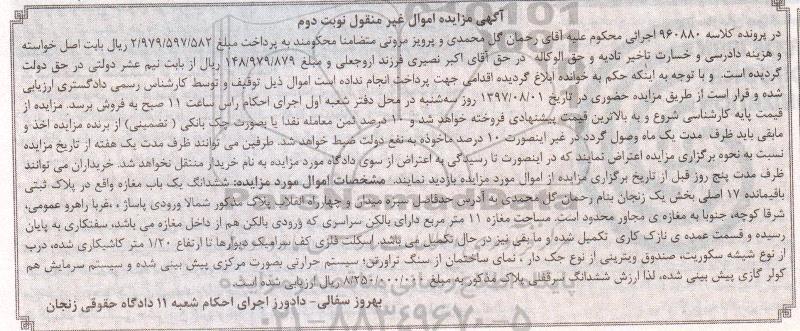 آگهی مزایده اموال غیر منقول نوبت دوم
در پرونده کلاسه ۹۶۰۸۸۰ اجرائی محکوم علیه آقای رحمان گل محمدی و پرویز مروتی متضامنا محکومند به پرداخت مبلغ ۲/۹۷۹/۵۹۷/۵۸۲ ریال بابت اصل خواسته
و هزینه دادرسی و خسارت تاخیر تادیه و حق الوکاله در حق آقای اکبر نصیری فرزند اروجعلی و مبلغ ۱۴۸/۹۷۹/۸۷۹ ریال از بابت نیم عشر دولتی در حق دولت
گردیده است. و با توجه به اینکه حکم به خوانده ابلاغ گردیده اقدامی جهت پرداخت انجام نداده است اموال ذیل توقیف و توسط کارشناس رسمی دادگستری ارزیابی
شده و قرار است از طریق مزایده حضوری در تاریخ ۱۳۹۷/۰۸/۰۱ روز سه‌شنبه در محل دفتر شعبه اول اجرای احکام راس ساعت ۱۱ صبح به فروش برسد. مزایده از
قیمت پایه کارشناسی شروع و به بالاترین قیمت پیشنهادی فروخته خواهد شد و ۱۰ درصد ثمن معامله نقدا یا بصورت چک بانکی ( تضمینی) از برنده مزایده اخذ و
مابقی باید ظرف مدت یک ماه وصول گردد در غیر اینصورت ۱۰ درصد ماخوذه به نفع دولت ضبط خواهد شد. طرفین می توانند ظرف مدت یک هفته از تاریخ مزایده
نسبت به نحوه برگزاری مزایده اعتراض نمایند که در اینصورت تا رسیدگی به اعتراض از سوی دادگاه مورد مزایده به نام خریدار منتقل نخواهد شد. خریداران می توانند
ظرف مدت پنج روز قبل از تاریخ برگزاری مزایده از اموال مورد مزایده بازدید نمایند. مشخصات اموال مورد مزایده: ششدانگ یک باب مغازه واقع در پلاک ثبتی
باقیمانده ۱۷ اصلی بخش یک زنجان بنام رحمان گل محمدی به آدرس حدفاصل سبزه میدان و چهارراه انقلاب پلاک مذکور شمالا ورودی پاساژ ، غربا راهرو عمومی،
شرقا کوچه، جنوبا به مغازه ی مجاور محدود است. مساحت مغازه ۱۱ متر مربع دارای بالکن سراسری که ورودی بالکن هم از داخل مغازه می باشد، سفتکاری به پایان
رسیده و قسمت عمده ی نازک کاری تکمیل شده و ما بقی نیز در حال تکمیل می باشد. اسکلت فلزی کف سرامیک دیوارها تا ارتفاع ۱/۲۰ متر کاشیکاری شده، درب
از نوع شیشه سکوریت، صندوق ویترینی از نوع جک دار ، نمای ساختمان از سنگ تراورتن، سیستم حرارتی بصورت مرکزی پیش بینی شده و سیستم سرمایش هم
کولر گازی پیش بینی شده، لذا ارزش ششدانگ سرقفلی پلاک مذکور به مبلغ ۸/۲۵۰/۰۰۰/۰۰۰ ریال ارزیابی شده است.
بهروز سفالی- دادورز اجرای احکام شعبه ۱۱ دادگاه حقوقی زنجان
۰۲۱-۸۸۳۴۹۶۷۰-۵